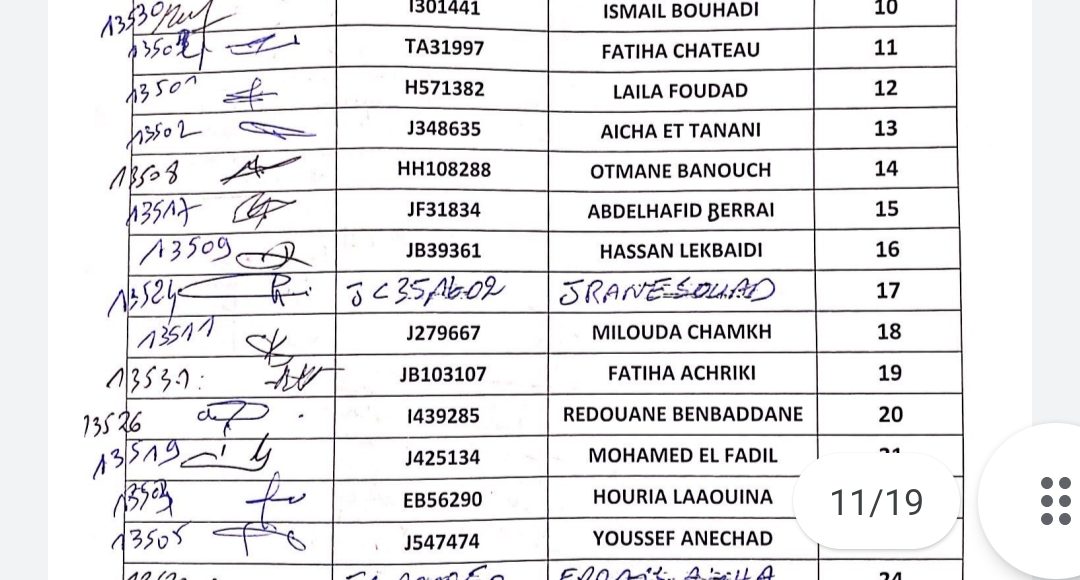 13530 I301441 ISMAIL BOUHADI 10
TA31997 FATIHA CHATEAU 11
13501 H571382 LAILA FOUDAD 12
13502 J348635 AICHA ET TANANI 13
13508 HH108288 OTMANE BANOUCH 14
13517 JF31834 ABDELHAFID BERRAI 15
13509 JB39361 HASSAN LEKBAIDI 16
13524 JRANE SOUAD 17
13511 J279667 MILOUDA CHAMKH 18
13531 JB103107 FATIHA ACHRIKI 19
13526 I439285 REDOUANE BENBADDANE 20
13519 J425134 MOHAMED EL FADIL
EB56290 HOURIA LAAOUINA
11/19
13505 J547474 YOUSSEF ANECHAD
24